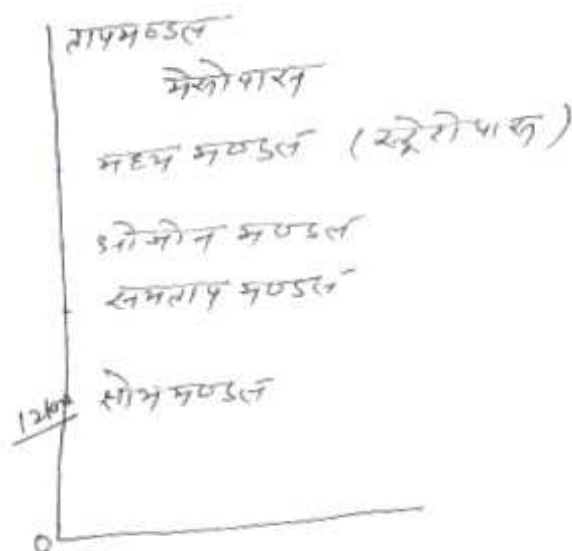 तापमण्डल
मेसोपास
मध्य मण्डल (स्ट्रेटोपास)
ओजोन मण्डल
समताप मण्डल
क्षोभमण्डल
12km
0